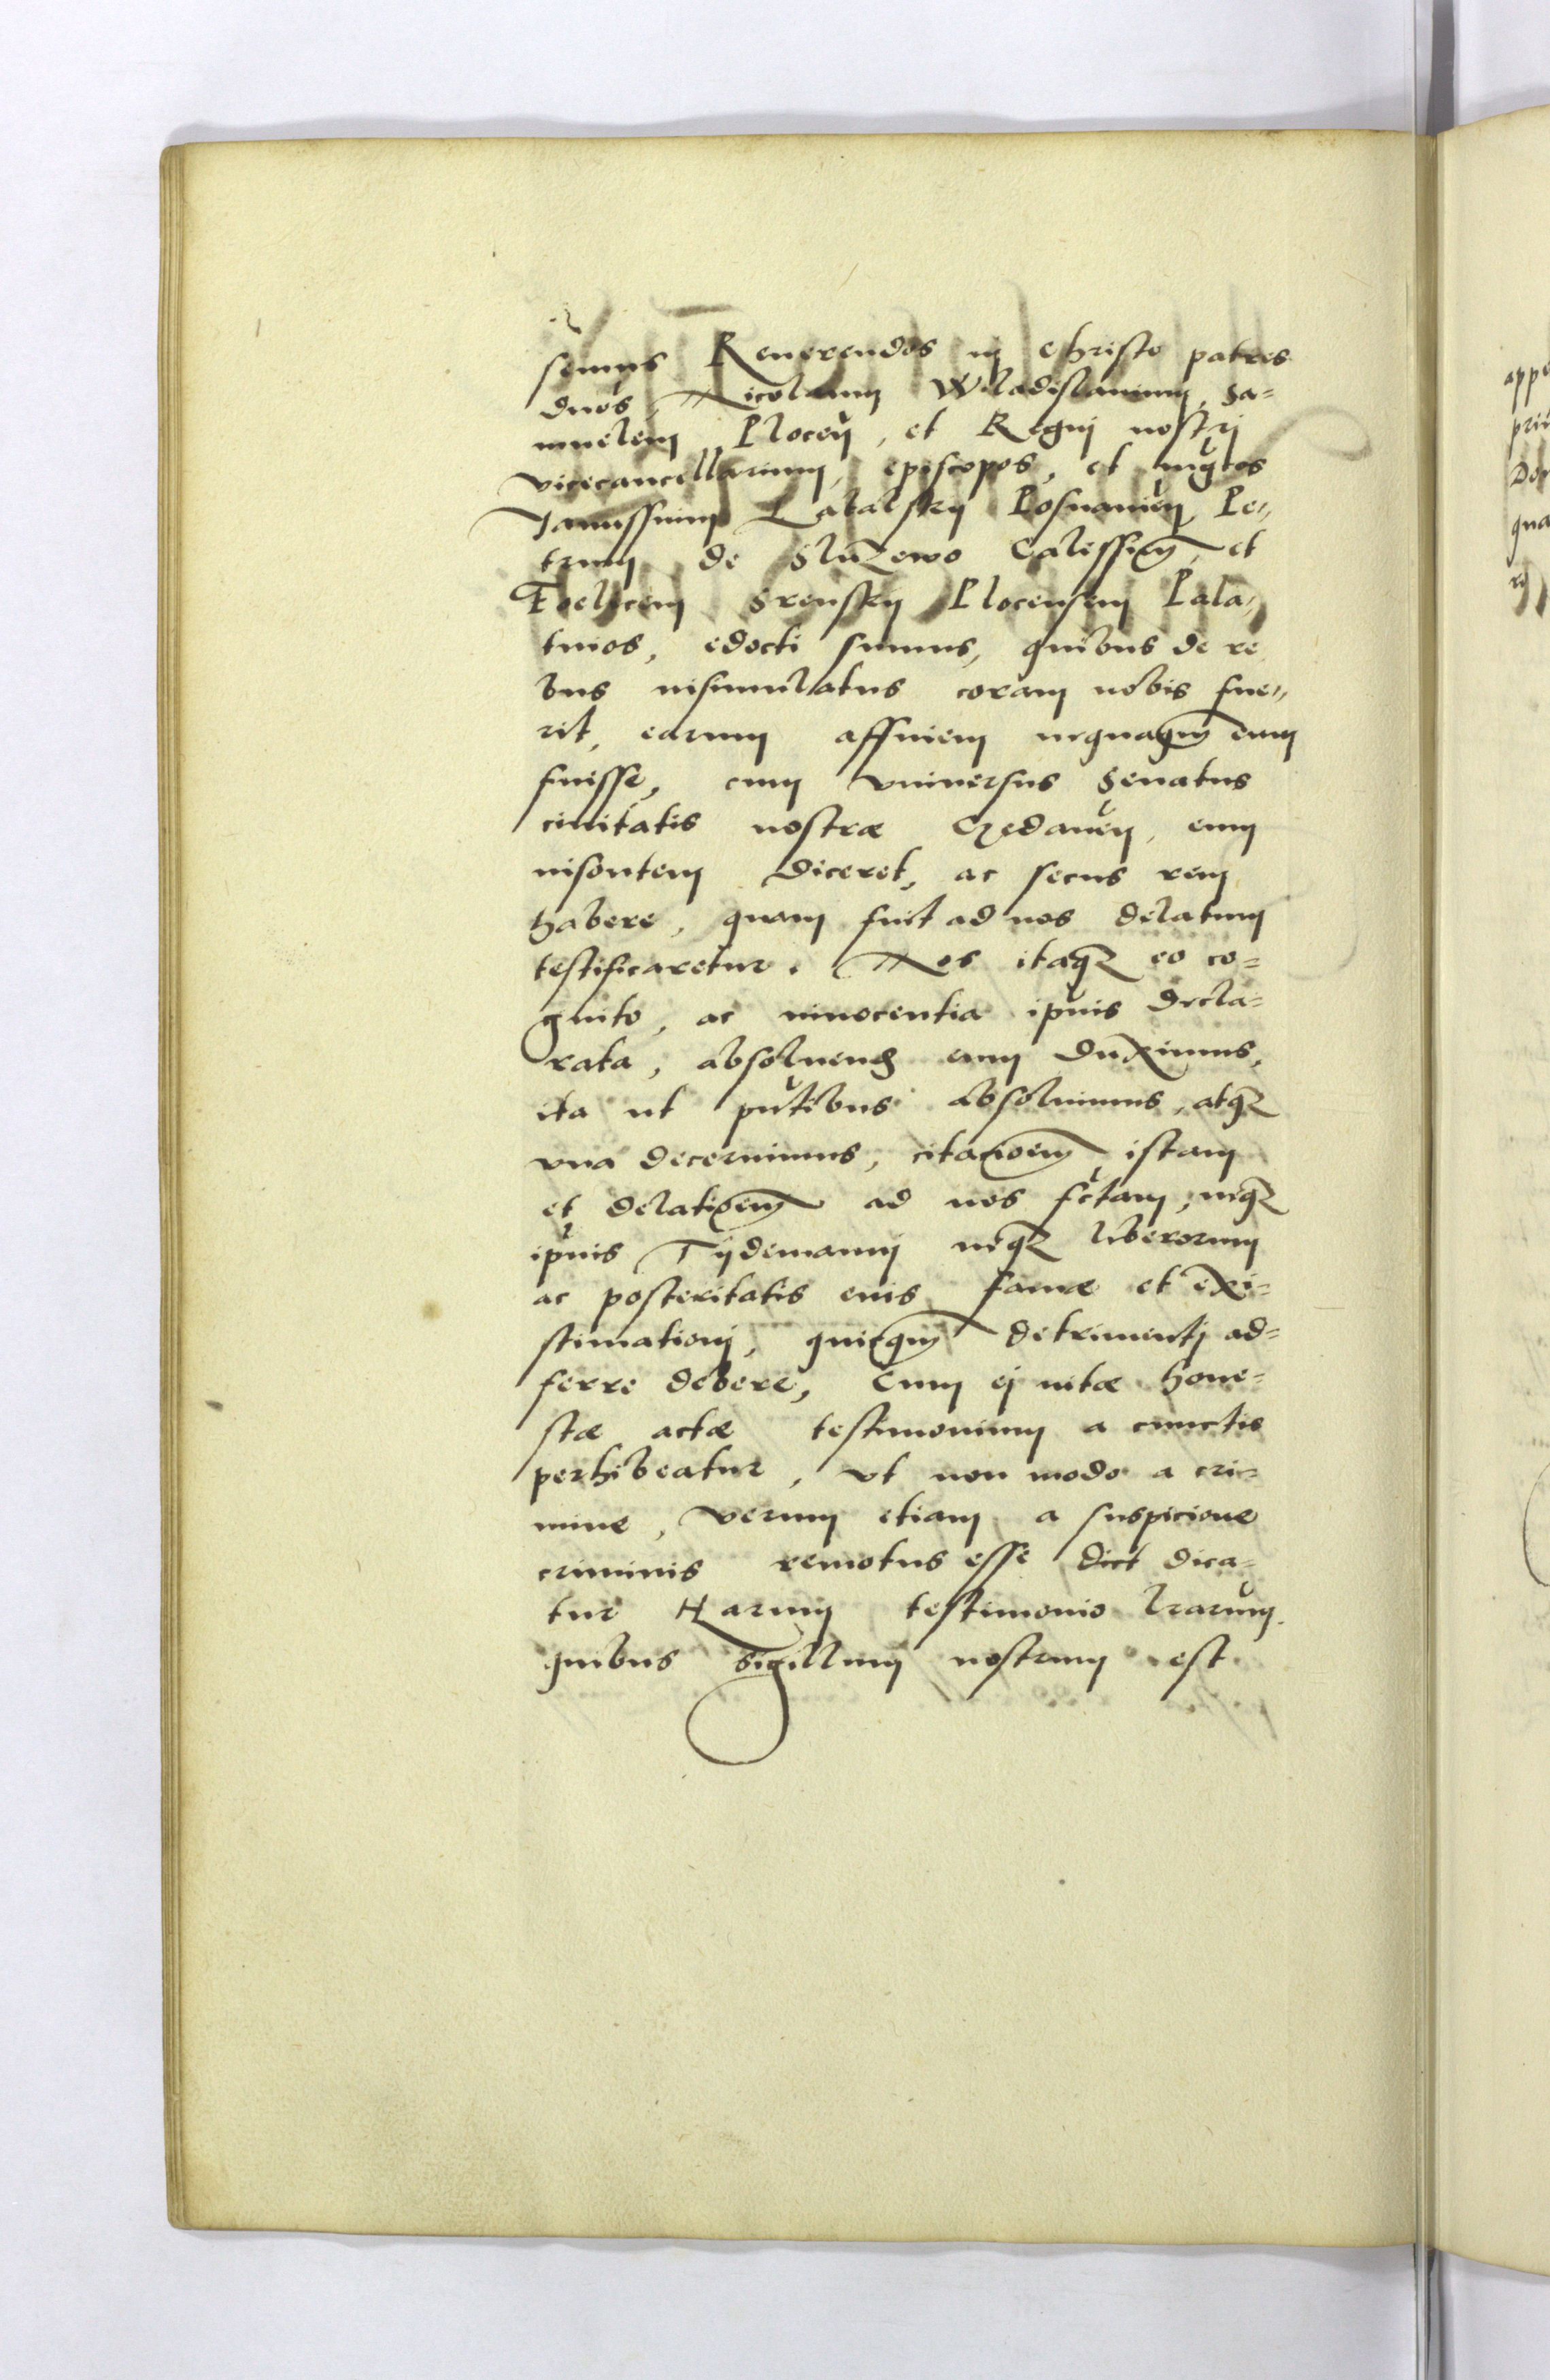 simus Reverendos in Christo patres
dnos, Nicolaum Wladislauium, Sa=
muelem Plocen, et Regni nostri
vicecancellarium, episcopos, et mgcos
Janussium Latalskij Posnanien, Pe„
trum de Sluzewo Calessiem, et
Foelicem Srenskij Plocensem Pala„
tinos, edocti sumus, quibus de re
bus insimulatus coram nobis fue„
rit, earum affinem nequaqm eum
fuisse, cum vniuersus Senatus
ciuitatis nostræ Gedanen, eum
insontem diceret, ac secus rem
habere, quam fuit ad nos delatum
testificaretur. Nos itaqz eo co=
gnito, ac innocentia ipius decla=
rata, absoluend eum duximus,
ita ut pntibus absoluimus, atqz
vna decernimus, citacioem istam
et delatioem ad nos fctam, neqz
ipius Tijdemannj neqz liberorum
ac posteritatis euis famæ et exi=
stimationj, quicqm detrimentj ad=
ferre debere, Cum ej uitæ hone=
stæ actæ testimonium a cunctis
perhibeatur, vt non modo a cri=
mine, verum etiam a suspicione
criminis remotus esse dict dica=
tur Harum testimonio lrarum
quibus Sigillum nostrum est
appe
priu
Do
qua